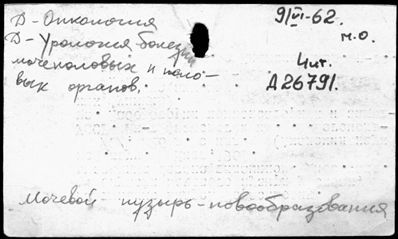 Д - Онкология
Д - Урология-болезни
мочеполовых и поло-
вых органов.
9/VI-62.
м.о.
4 чит.
Д26791.
Мочевой пузырь - новообразования